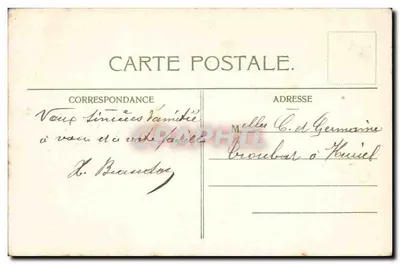 CARTE POSTALE.
CORRESPONDANCE
Vœux sincères d'amitié
à vous et à votre famille
ADRESSE
Melles C. et Germaine
à Huriel